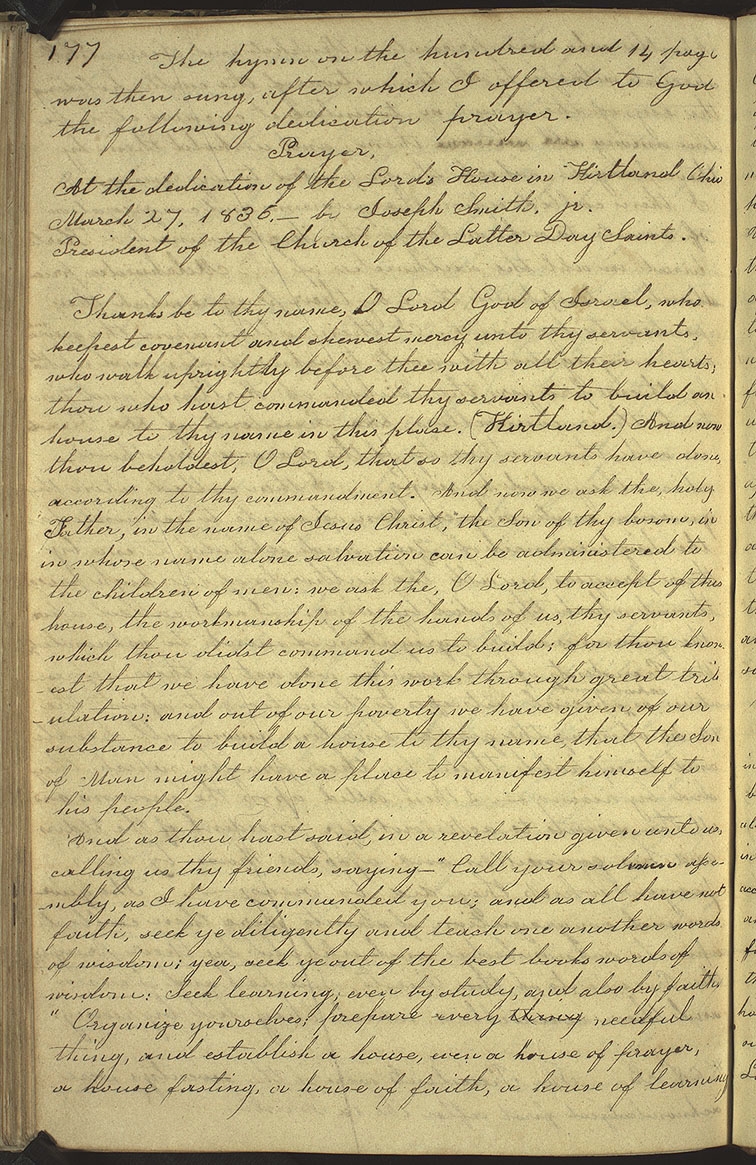 177 The hymn on the hundred and 14 page
was then sung, after which I offered to God
the following dedication prayer.
Prayer,
At the dedication of the Lord's House in Kirtland Ohio
March 27, 1836.— by Joseph Smith, jr.
President of the Church of the Latter Day Saints.
Thanks be to thy name, O Lord God of Israel, who
keepest covenant and shewest mercy unto thy servants,
who walk uprightly before thee with all their hearts;
thou who hast commanded thy servants to build an
house to thy name in this place. (Kirtland.) And now
thou beholdest, O Lord, that so thy servants have done,
according to thy commandment. And now we ask the, holy
Father, in the name of Jesus Christ, the Son of thy bosom, in
in whose name alone salvation can be administered to
the children of men: we ask the, O Lord, to accept of this
house, the workmanship of the hands of us, thy servants,
which thou didst command us to build; for thou know-
-est that we have done this work through great trib
-ulation: and out of our poverty we have given of our
substance to build a house to thy name, that the Son
of Man might have a place to manifest himself to
his people.
And as thou hast said, in a revelation given unto us,
calling us thy friends, saying—" Call your solemn asse-
-mbly, as I have commanded you; and as all have not
faith, seek ye diligently and teach one another words
of wisdom; yea, seek ye out of the best books words of
wisdom: Seek learning, even by study, and also by faith.
" Organize yourselves; prepare every thing needful
thing, and establish a house, even a house of prayer,
a house fasting, a house of faith, a house of learning